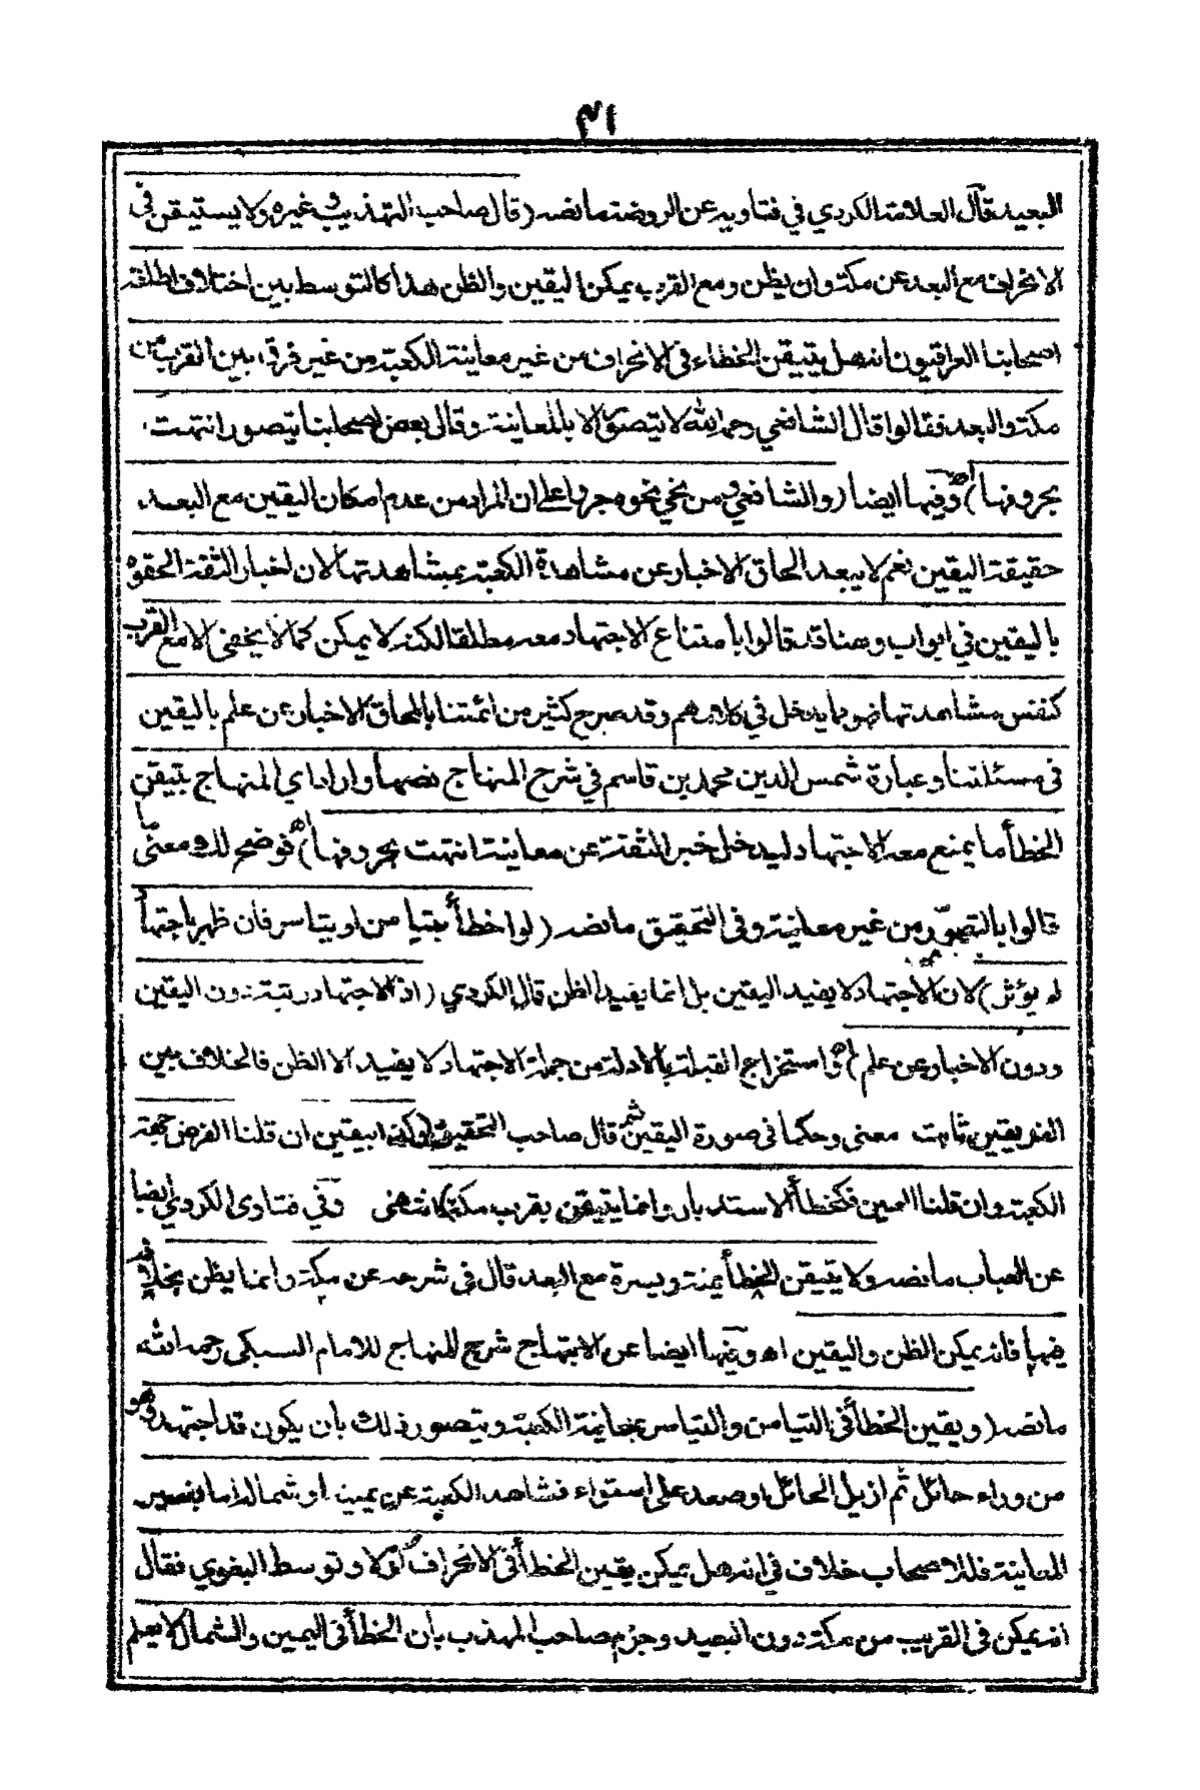 ٣١
البعيد قال العلامة الكردي في فتاويه عن الروضة ما نصه (قال صاحب التهذيب وغيره ولا يستيقن في
الانحراف مع البعد عن مكة وان يظن ومع القرب يمكن اليقين والظن هذا كالتوسط بين اختلاف اطلقه
اصحابنا العراقيون انه هل يتيقن الخطاء في الانحراف من غير معاينة الكعبة من غير فرق بين القرب من
مكة والبعد فقالوا قال الشافعي رحمه الله لا يتصور الا بالمعاينة وقال بعض اصحابنا يتصور انتهت
بحروفها) اه وفيها ايضا (والشافعي ومن نحي نحوه جروا على ان المراد من عدم امكان اليقين مع البعد
حقيقة اليقين نعم لا يبعد الحاق الاخبار عن مشاهدة الكعبة بمشاهدتها لان اخبار الثقة الحقوه
باليقين في ابواب وهنا قد قالوا بامتناع الاجتهاد معه مطلقا لكنه لا يمكن كما لا يخفى الا مع القرب
كنفس مشاهدتها فهو مما يدخل في كلامهم وقد صرح كثير من ائمتنا بالحاق الاخبار عن علم باليقين
في مسئلتنا وعبارة شمس الدين محمد بن قاسم في شرح المنهاج نصها واراد اي المنهاج بتيقن
الخطأ ما يمنع معه الاجتهاد ليدخل خبر الثقة عن معاينة انتهت بحروفها) اه فوضح لك معنى ما
قالوا بالتصور من غير معاينة وفي التحقيق ما نصه (لو اخطأ بتيامن او بتياسر فان ظهر باجتهاد
لم يؤثر) لان الاجتهاد لا يفيد اليقين بل انما يفيد الظن قال الكردي (اذ الاجتهاد رتبته دون اليقين
ودون الاخبار عن علم) اه واستخراج القبلة بالادلة من جملة الاجتهاد لا يفيد الا الظن فالخلاف بين
الفريقين ثابت معنى وحكما في صورة اليقين ثم قال صاحب التحقيق (وكذا بيقين ان قلنا الفرض جهة
الكعبة وان قلنا العين فكخطأ الاستدبار وانما يتيقن بقرب مكة) انتهى وفي فتاوى الكردي ايضا
عن العباب ما نصه ولا يتيقن الخطأ يمنة ويسرة مع البعد قال في شرحه عن مكة وانما يظن بخلافه
فيها فانه يمكن الظن واليقين اه وفيها ايضا عن الابتهاج شرح المنهاج للامام السبكي رحمه الله
ما نصه (ويقين الخطأ في التيامن والتياسر بمعاينة الكعبة ويتصور ذلك بان يكون قد اجتهد وهو
من وراء حائل ثم ازيل الحائل او صعد على استواء فشاهد الكعبة عن يمينه او شماله اما بغير
المعاينة فللاصحاب خلاف في انه هل يمكن يقين الخطأ في الانحراف او لا وتوسط البغوي فقال
انه يمكن في القريب من مكة دون البعيد وجزم صاحب المهذب بان الخطأ في اليمين والشمال لا يعلم